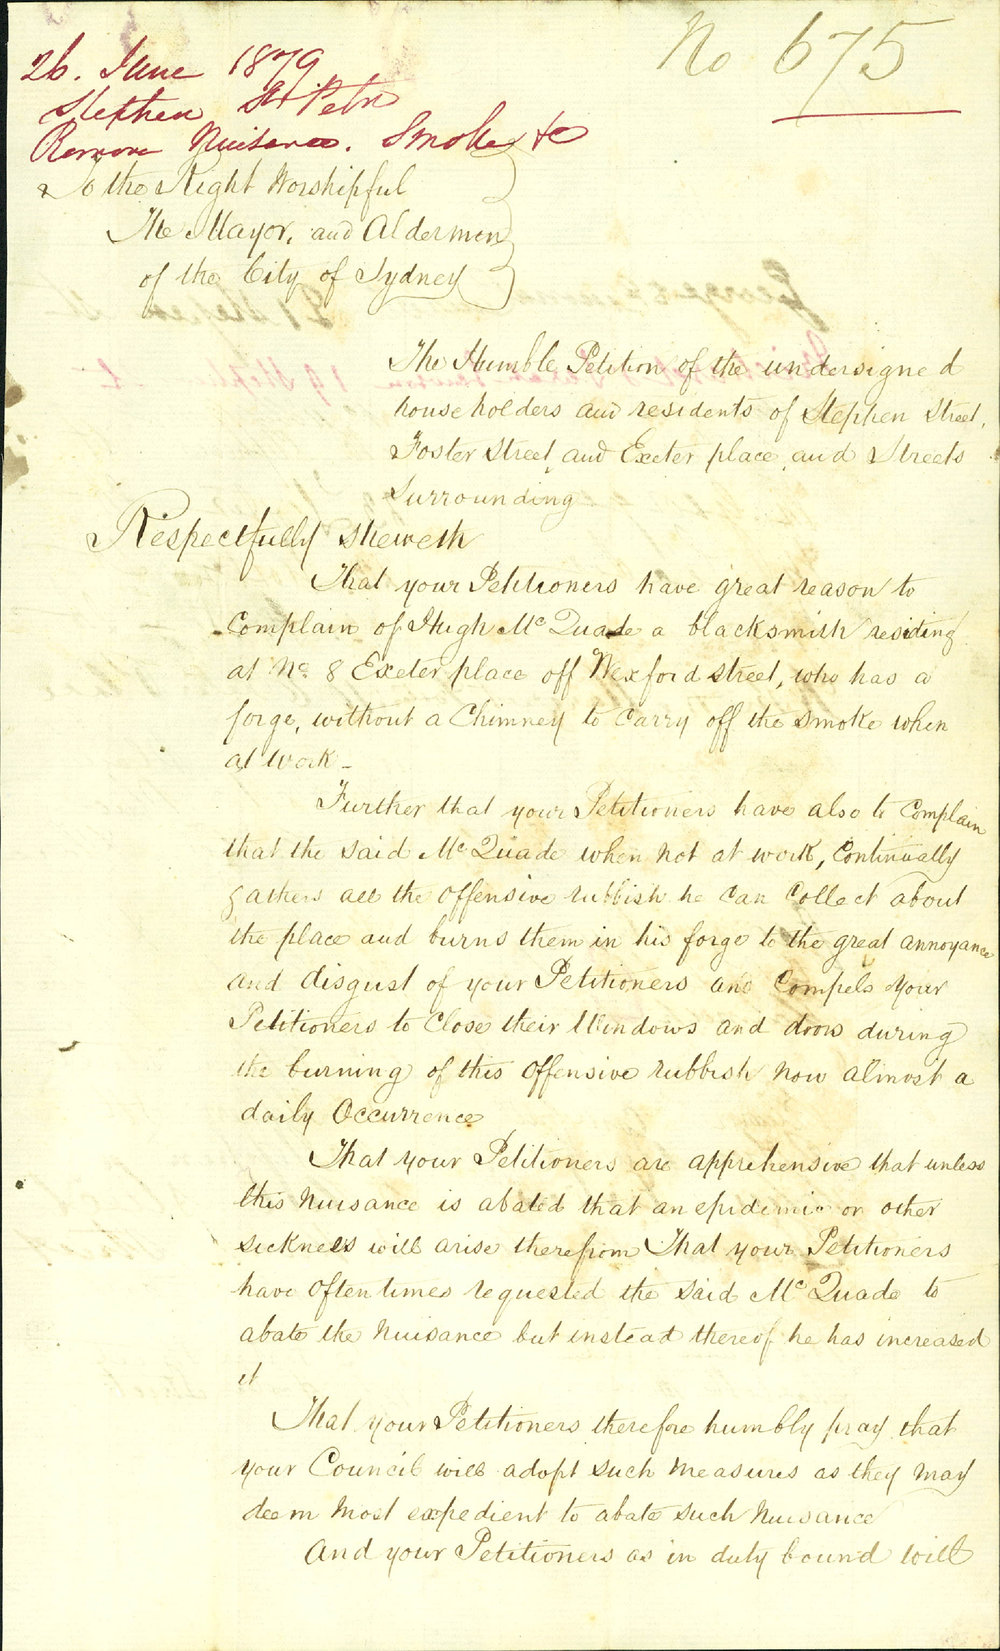 No 675
26. June 1879
Stephen St Petn
Remove Nuisance. Smoke &c
To the Right Worshipful
The Mayor, and Aldermen
of the City of Sydney
The Humble Petition of the undersigned
householders and residents of Stephen Street,
Foster Street, and Exeter place, and Streets
Surrounding
Respectfully sheweth
That your Petitioners have great reason to
Complain of Hugh Mc Quade a blacksmith residing
at No. 8 Exeter place off Wexford street, who has a
forge, without a Chimney to Carry off the smoke when
at work –
Further that your Petitioners have also to Complain
that the said Mc Quade when not at work, Continually
gathers all the offensive rubbish he can Collect about
the place and burns them in his forge to the great annoyance
and disgust of your Petitioners and Compels your
Petitioners to Close their Windows and doors during
the burning of this offensive rubbish now almost a
daily Occurrence
That your Petitioners are apprehensive that unless
this Nuisance is abated that an epidemic or other
sickness will arise therefrom That your Petitioners
have Oftentimes requested the said Mc Quade to
abate the Nuisance but instead thereof he has increased
it
That your Petitioners therefore humbly pray that
your Council will adopt such Measures as they May
deem Most expedient to abate such Nuisance
And your Petitioners as in duty bound will